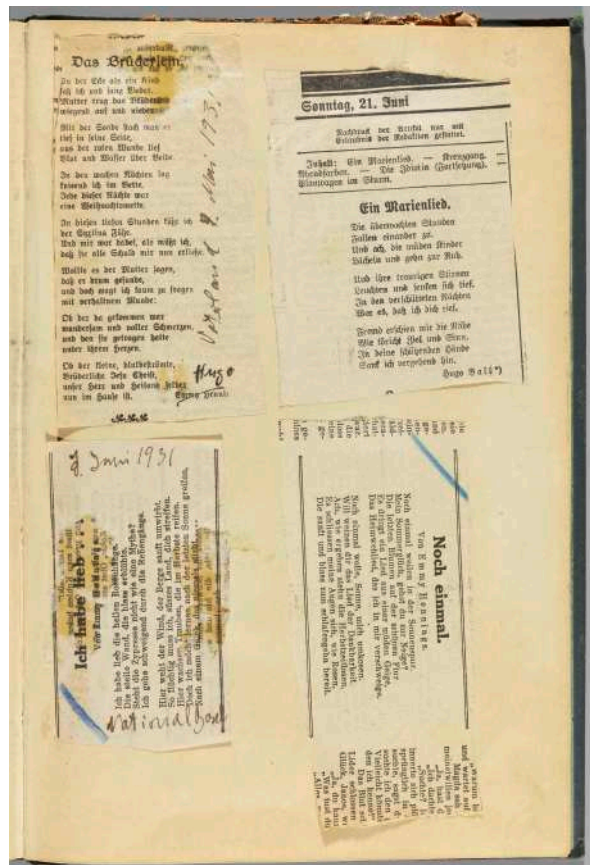 Das Brüderlein.
In der Ecke als ein Kind
saß ich und sang Lieder.
Mutter trug das Brüderlein
wiegend auf und nieder.
Mit der Sonde stach man es
tief in seine Seite,
aus der roten Wunde lief
Blut und Wasser über Beite
In den wachen Nächten lag
knieend ich im Bette.
Jede dieser Nächte war
eine Weihnachtsmette.
In diesen tiefen Stunden küßt ich
der Füße.
Und mir war dabei, als müßt ich,
daß sie alle Schuld mir nun erließe.
Wollte es der Mutter sagen,
daß er drum gesunde,
und doch wagt ich kaum zu fragen
mit verhaltnem Munde:
Ob der da gekommen war
wundersam und voller Schmerzen,
und den sie getragen hatte
unter ihrem Herzen.
Ob der kleine, blutbeströmte,
Brüderliche Jesu Christ,
unser Herr und Heiland selber
nun im Hause ist.
Hugo
Emmy Hennings
Vaterland 9. Mai 1931
Sonntag, 21. Juni
Nachdruck der Artikel nur mit
Erlaubnis der Redaktion gestattet.
Inhalt: Ein Marienlied. — Kreuzgang.
Abendfarben. — Die Idiotin (Fortsetzung).
Planwagen im Sturm.
Ein Marienlied.
Die übermachten Stunden
Fallen einander zu.
Und ach, die müden Kinder
Lächeln und gehn zur Ruh.
Und ihre traurigen Stirnen
Leuchten und senken sich tief.
In den verschütteten Nächten
War es, daß ich dich rief.
Fremd erschien mir die Nähe
Wie töricht Ziel und Sinn.
In deine schützenden Hände
Sank ich vergehend hin.
Hugo Ball*)
8. Juni 1931
Ich habe lieb . . .
Von Emmy Hennings
Ich habe lieb die hellen Bogengänge.
Die steile Wand, die blass erblühte.
Steht die Zypresse nicht wie eine Mythe?
Ich gehe schweigend durch die Rebengänge.
Hier weht der Wind, der Berge sanft umwirbt.
So flüchtig muss ich, dunkles Land, dich streifen.
Hier wachsen Trauben, die im Herbste reifen.
Doch ich möchte lernen nach der letzten Sonne greifen.
Nach einem Glück, das
National Basel
Noch einmal.
Von Emmy Hennings.
Noch einmal weilen in der Sonnenspur
Mein Sommerglück, gehst du zur Neige?
Die letzten Blumen auf der schönen Flur
Es dringt ein Lied aus einer müden Geige,
Das Heimwehlied, das ich in mir verschweige.
Noch einmal wolle, Sonne, mich umkosen.
Will weinen dir das Lied der Dankbarkeit
Ach, wie ergeben stehn die Herbstzeitlosen,
Es schliessen meine Augen sich, wie Rosen,
Die sanft und blass zum schlafengehn bereit.
„Warum
und wartet auf
Magda sah
meinetwillen
„Ja, hast d
„Ich dachte
„Suchte?
innerte sich
sprünglich in
suchte, sagst d
suchte ich den
Vielleicht könnte
den ich kenne“
Das Blut
Lider schlossen
Glück, Janos,
„Ja, du kann
„Was hast du
„Alles